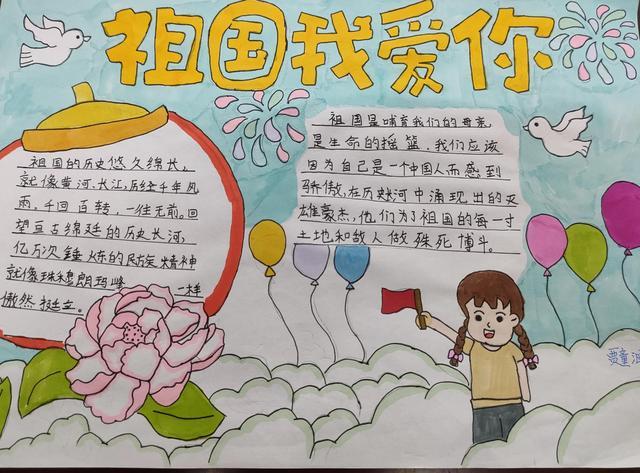 祖国我爱你
祖国的历史悠久绵长，
就像黄河、长江，历经千年风
雨，千回百转，一往无前。回
望亘古绵延的历史长河，
亿万次锤炼的民族精神
就像珠穆朗玛峰 一样
傲然挺立。
祖国是哺育我们的母亲，
是生命的摇篮，我们应该
因为自己是一个中国人而感到
骄傲，在历史河中涌现出的英
雄豪杰，他们为了祖国的每一寸
土地和敌人做殊死博斗。
贾童